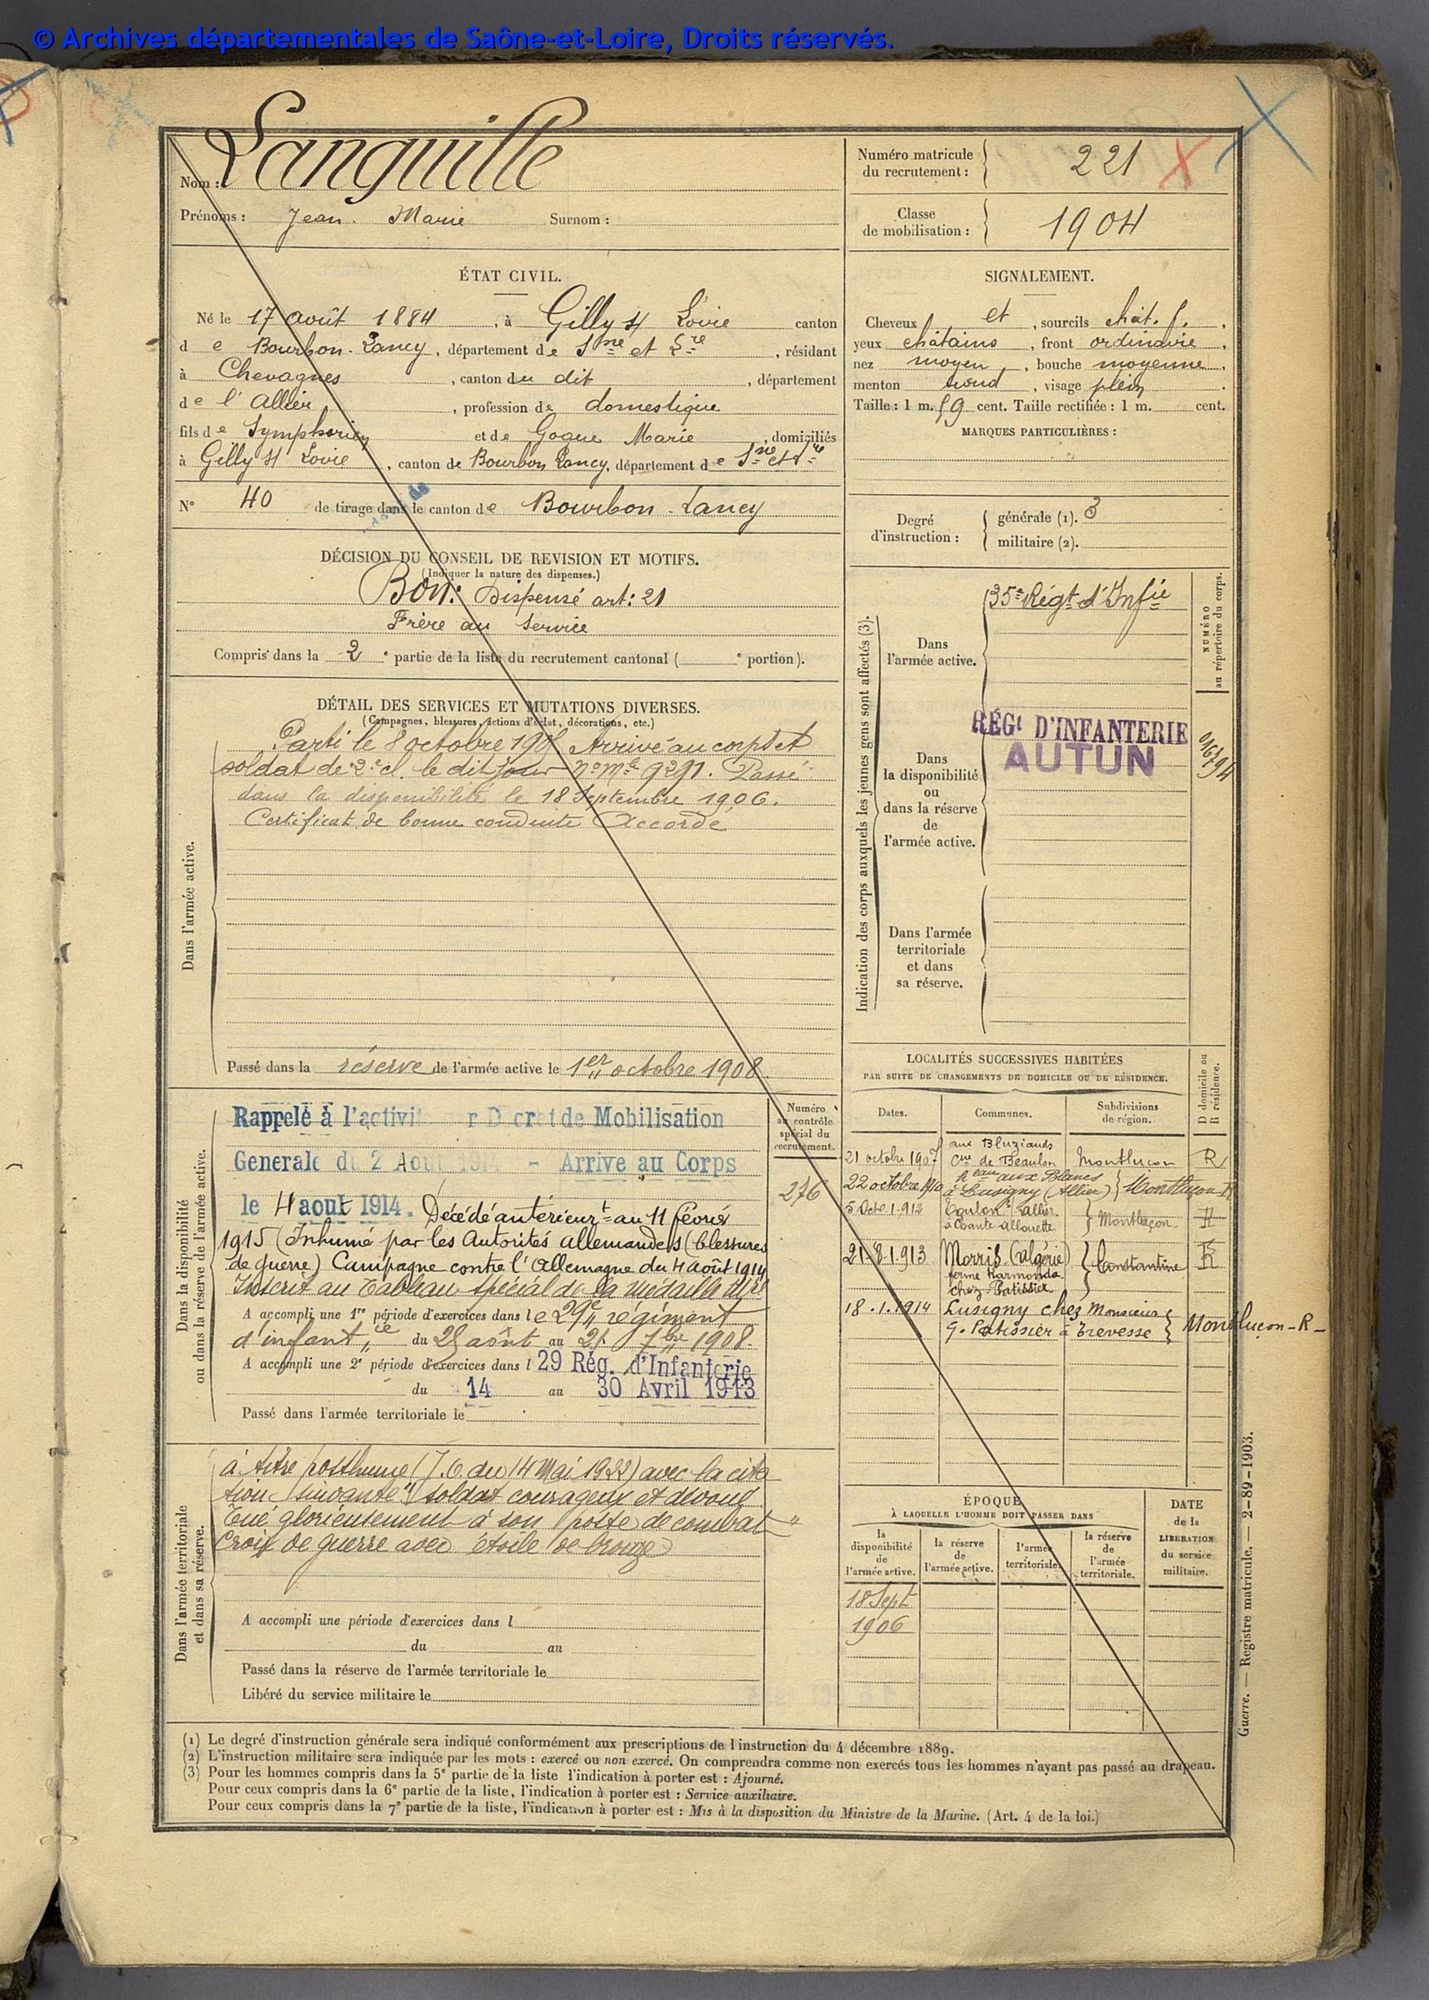 © Archives départementales de Saône-et-Loire, Droits réservés.
Nom : Languille
Prénoms : Jean Marie Surnom :
Numéro matricule
du recrutement : 221
Classe
de mobilisation : 1904
ÉTAT CIVIL.
Né le 17 août 1884, à Gilly s/ Loire canton
de Bourbon-Lancy, département de Sne et Lre, résidant
à Chevagnes, canton du dit, département
de l'Allier, profession de domestique
fils de Symphorien et de Gogue Marie, domiciliés
à Gilly s/ Loire, canton de Bourbon Lancy, département de Sne et Lre
N° 40 de tirage dans le canton de Bourbon-Lancy
SIGNALEMENT.
Cheveux et, sourcils chât. f.,
yeux châtains, front ordinaire,
nez moyen, bouche moyenne,
menton rond, visage plein.
Taille : 1 m. 59 cent. Taille rectifiée : 1 m. cent.
MARQUES PARTICULIÈRES :
Degré
d'instruction :
générale (1). 3
militaire (2).
DÉCISION DU CONSEIL DE REVISION ET MOTIFS.
(Indiquer la nature des dispenses.)
Bon : Dispensé art : 21
Frère au service
Compris dans la 2e partie de la liste du recrutement cantonal ( e portion).
DÉTAIL DES SERVICES ET MUTATIONS DIVERSES.
(Campagnes, blessures, actions d'éclat, décorations, etc.)
Dans l'armée active.
Parti le 8 octobre 1905 Arrivé au corps et
soldat de 2e cl. le dit jour n° Mle 9291. Passé
dans la disponibilité le 18 Septembre 1906.
Certificat de bonne conduite Accordé
Passé dans la réserve de l'armée active le 1er octobre 1908.
Indication des corps auxquels les jeunes gens sont affectés (3).
NUMÉRO
au répertoire du corps.
Dans
l'armée active.
35e Régt d'Infie
Dans
la disponibilité
ou
dans la réserve
de
l'armée active.
RÉGt D'INFANTERIE
AUTUN
Dans l'armée
territoriale
et dans
sa réserve.
Dans la disponibilité
ou dans la réserve de l'armée active.
Numéro
au contrôle
spécial du
recrutement.
276
Rappelé à l'activité par Décret de Mobilisation
Generale du 2 Aout 1914 - Arrive au Corps
le 4 aout 1914. Décédé antérieurt au 11 février
1915 (Inhumé par les Autorités allemandes (blessures
de guerre) Campagne contre l'Allemagne du 4 Août 1914
Inscrit au Tableau spécial de la Médaille Mre
A accompli une 1re période d'exercices dans le 29e régiment
d'infantie du 25 août au 21 7bre 1908.
A accompli une 2e période d'exercices dans l 29 Rég. d'Infanterie
du 14 au 30 Avril 1913
Passé dans l'armée territoriale le
LOCALITÉS SUCCESSIVES HABITÉES
PAR SUITE DE CHANGEMENTS DE DOMICILE OU DE RÉSIDENCE.
D domicile ou
R résidence.
Dates. Communes. Subdivisions
de région.
21 octobre 1907 aux Bluziauds
Cne de Beaulon Montluçon R
22 octobre 1910 heau aux Blancs
à Lusigny (Allier) Montluçon R
5 Octe 1912 Toulon Allier
à Chante-Allouette Montluçon R
21-8-1913 Morris (algérie)
ferme Harmonda
chez Patissier Constantine R
18.1.1914 Lusigny chez Monsieur
G. Patissier à Trevesse Montluçon - R -
Dans l'armée territoriale
et dans sa réserve.
à titre posthume (J.O. du 14 Mai 1922) avec la cita
tion suivante "Soldat courageux et dévoué
Tué glorieusement à son poste de combat"
Croix de guerre avec étoile de bronze
A accompli une période d'exercices dans l
du au
Passé dans la réserve de l'armée territoriale le
Libéré du service militaire le
ÉPOQUE
À LAQUELLE L'HOMME DOIT PASSER DANS
la
disponibilité
de
l'armée active.
la réserve
de
l'armée active.
l'armée
territoriale.
la réserve
de
l'armée
territoriale.
DATE
de la
LIBÉRATION
du service
militaire.
18 Sept
1906
Guerre. — Registre matricule. — 2-89-1903.
(1) Le degré d'instruction générale sera indiqué conformément aux prescriptions de l'instruction du 4 décembre 1889.
(2) L'instruction militaire sera indiquée par les mots : exercé ou non exercé. On comprendra comme non exercés tous les hommes n'ayant pas passé au drapeau.
(3) Pour les hommes compris dans la 5e partie de la liste l'indication à porter est : Ajourné.
Pour ceux compris dans la 6e partie de la liste, l'indication à porter est : Service auxiliaire.
Pour ceux compris dans la 7e partie de la liste, l'indication à porter est : Mis à la disposition du Ministre de la Marine. (Art. 4 de la loi.)